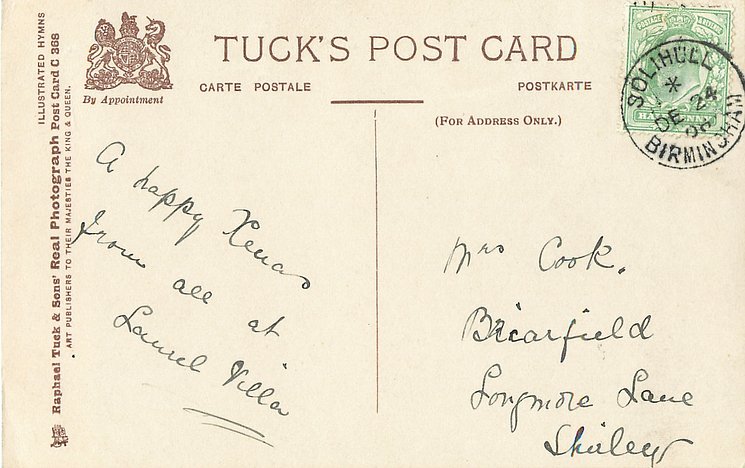 ILLUSTRATED HYMNS
Raphael Tuck & Sons' Real Photograph Post Card C 368
ART PUBLISHERS TO THEIR MAJESTIES THE KING & QUEEN.
By Appointment
TUCK'S POST CARD
CARTE POSTALE
POSTKARTE
(FOR ADDRESS ONLY.)
POSTAGE
HALFPENNY
SOLIHULL
*
DE 24
BIRMINGHAM
A happy Xmas
from all at
Laurel Villa
Mrs Cook.
Briarfield
Longmore Lane
Shirley